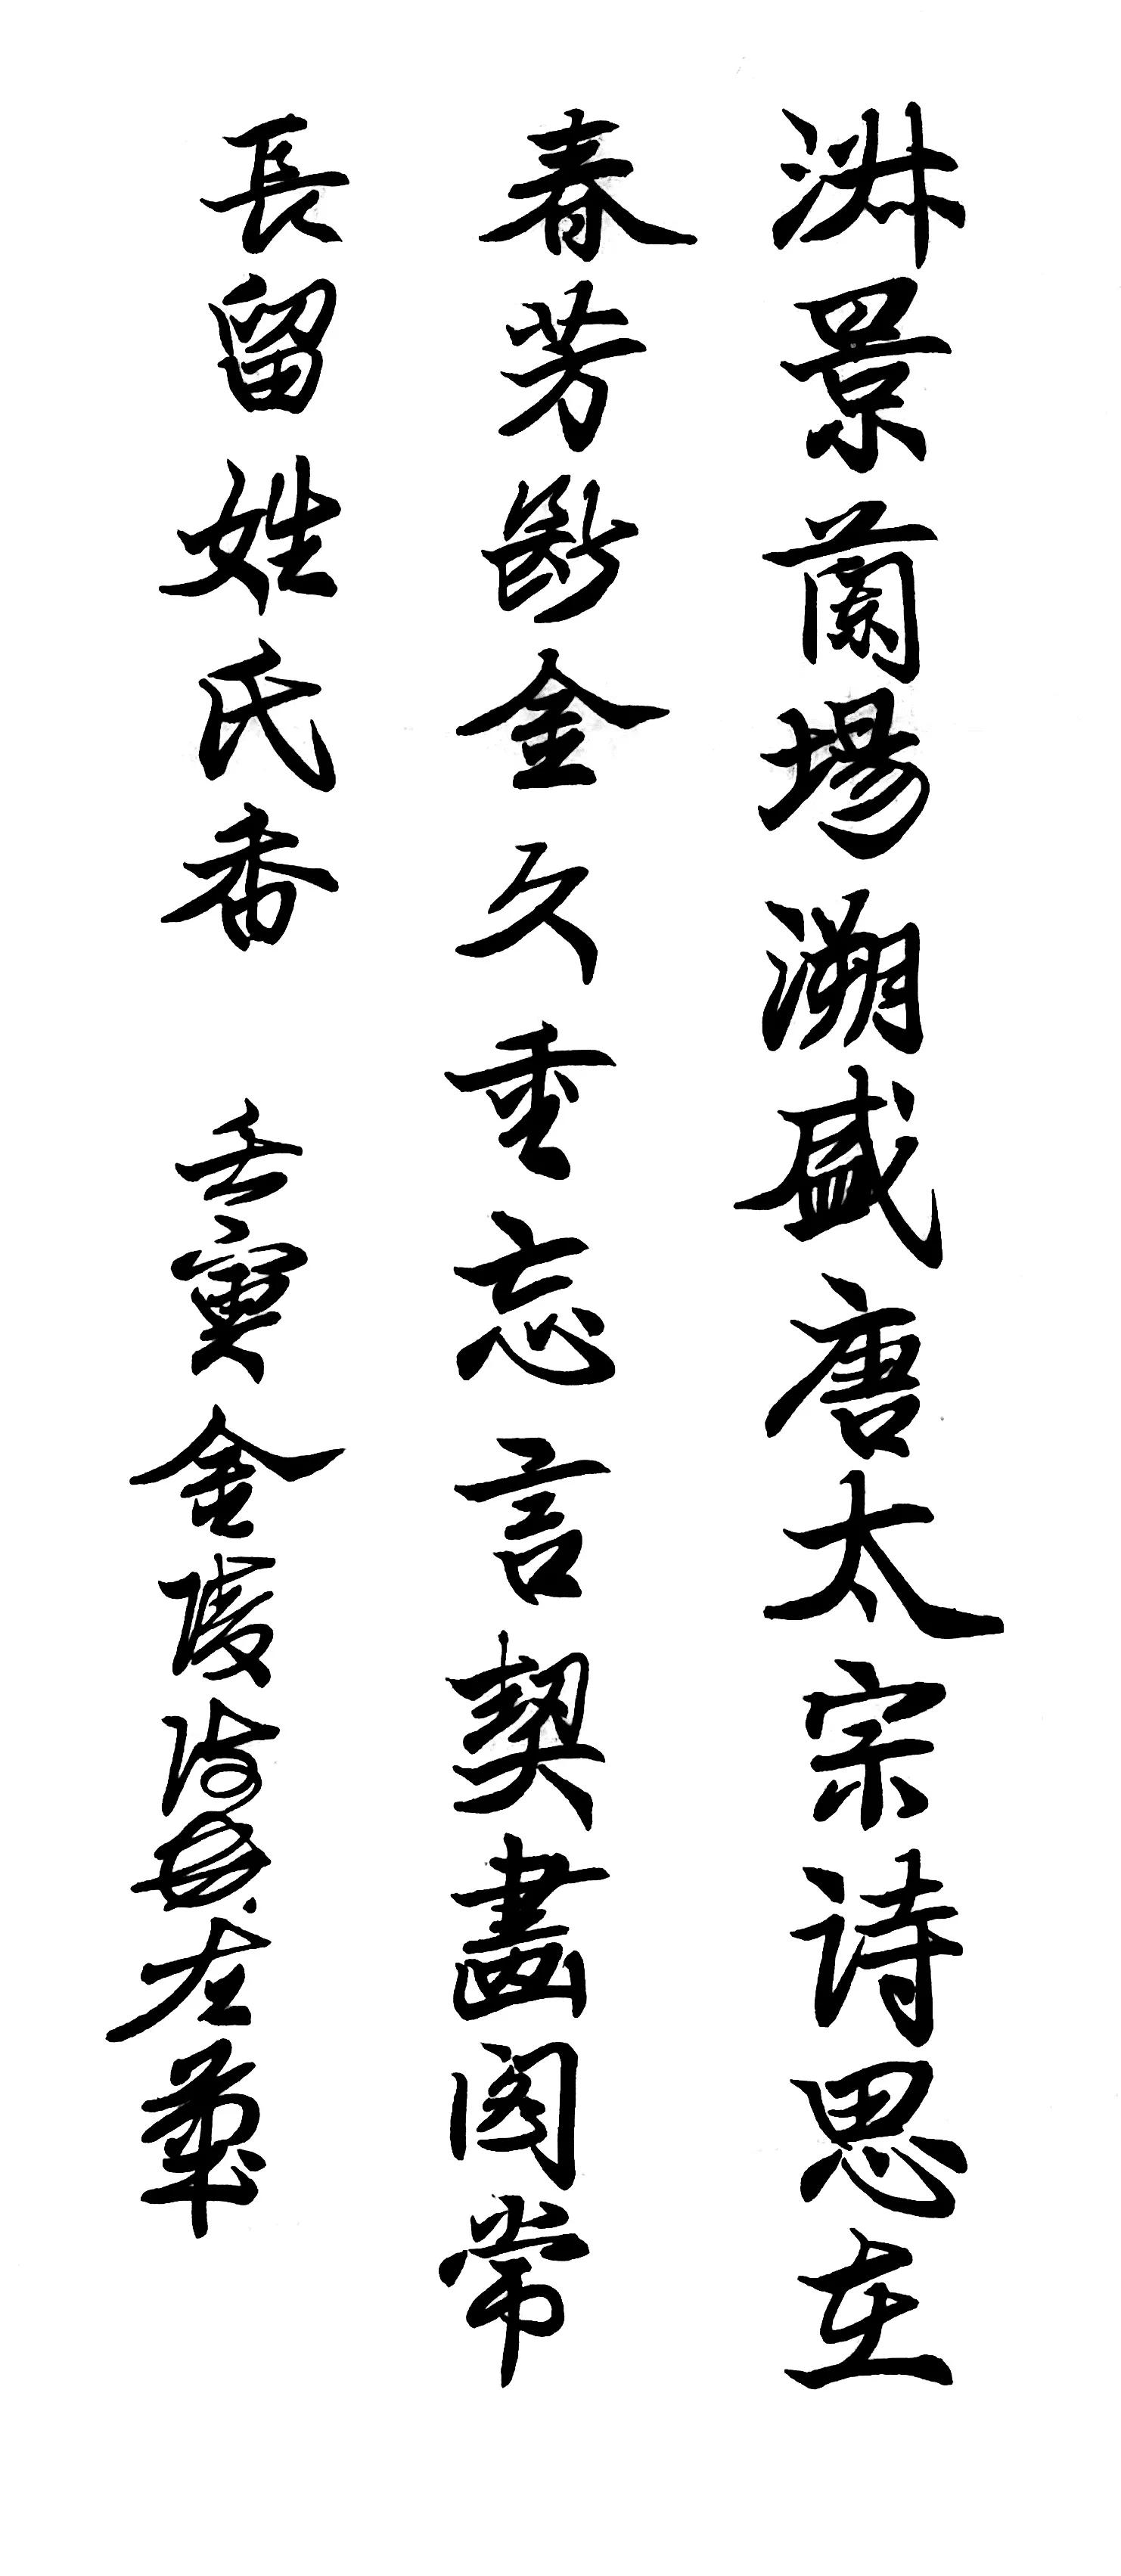 淋景蘭場溯盛唐太宗诗思在
春芳斷金久重忘言契畫阁常
長留姓氏香 壬寅金陵 左筆